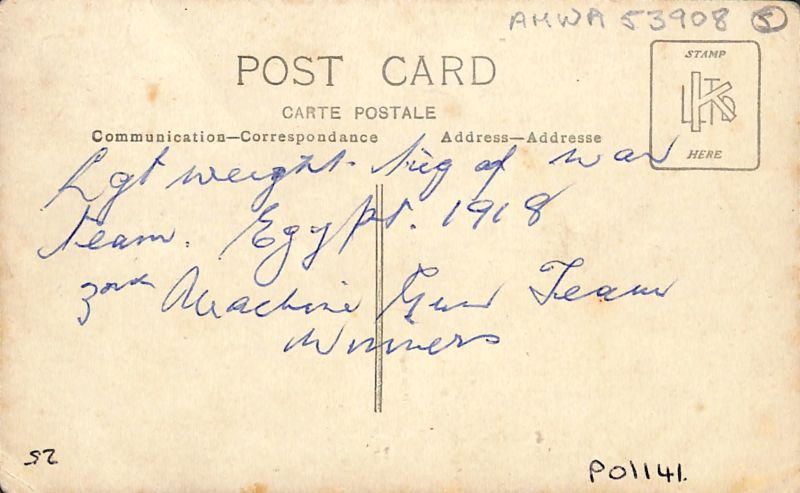 AMWA 53908 5
POST CARD
CARTE POSTALE
Communication—Correspondance
Address—Addresse
STAMP
HERE
Lgt weight tug of war
team. Egypt. 1918
3rd Machine Gun Team
Winners
52
P01141.